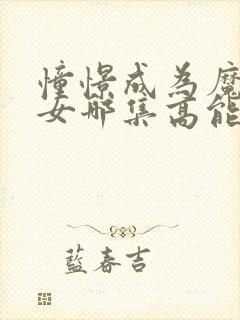 憧憬成為魔
女哪集高能
藍春吉